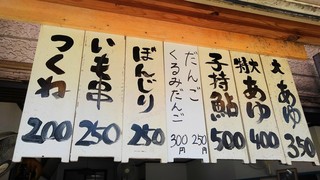 大あゆ
350
特大あゆ
400
子持鮎
500
だんご
250円
くるみだんご
300円
ぼんじり
250
いも串
250
つくね
200